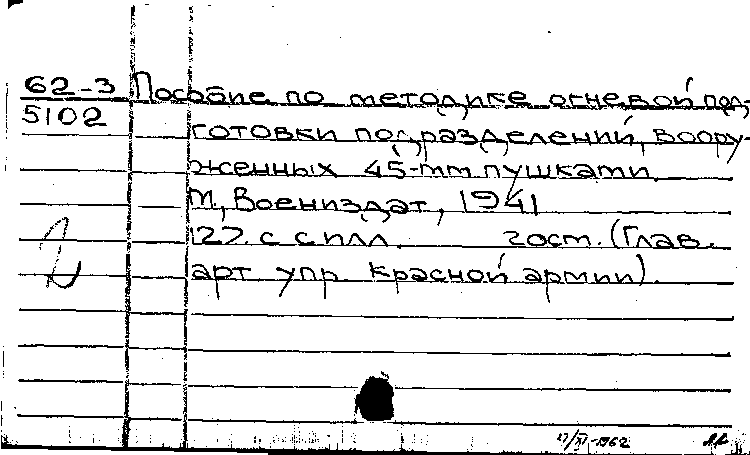 62-3 Пособие по методике огневой под-
5102 готовки подразделений, воору-
женных 45-мм пушками.
М., Воениздат, 1941
127 с с илл. 2 ост. (Глав.
арт упр Красной армии).
17/XI-1962